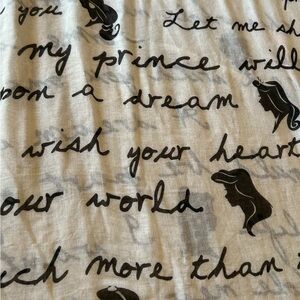 you Let me sh
my prince will
pon a dream
wish your heart
our world
ch more than